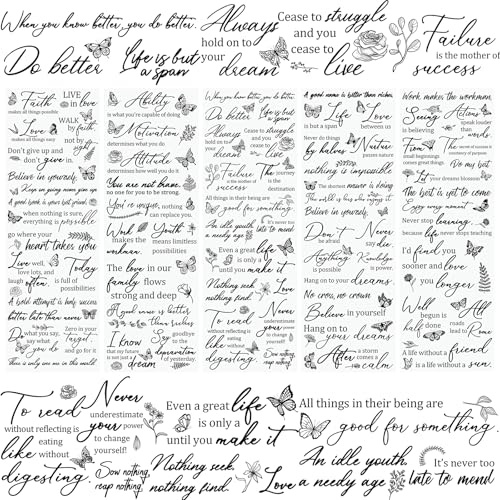 When you know better you do better.
Do better
Life is but
a span
Always
hold on to
your dream
Cease to struggle
and you
cease to
live
Failure
is the mother of
success
Faith
makes all things possible
LIVE
in love
Love
makes all things easy
WALK
by faith
not by
sight.
Don't give up and
don't give in.
Believe in yourself.
Keep on going never give up.
A good book is your best friend.
when nothing is sure,
everything is possible
go where your
heart takes you
Live well,
love lots, and
laugh often.
Today
is full of
possibilities
A bold attempt is half success
better late than never
Do what you
say, say what
you do
Zero in your
target
and go for it
there is only one me in this world
Ability
is what you're capable of doing
Motivation
determines what you do
Attitude
determines how well you do it
You are not brave.
no one for you to be strong.
You're unique,
nothing
can replace you.
Work
makes the
workman.
Youth
means limitless
possibilities
The love in our
family flows
strong and deep
A good name is better
than riches
I know
that my future
is not just a
dream
Say
goodbye
to the
depravation
of yesterday.
When you know better you do better.
Do better
Life is but
a span
Always
hold on to
your dream
Cease to struggle
and you
cease to
live
Failure
is the mother of
success
The journey
is the
destination
All things in their being are
good for something.
An idle youth,
a needy age
It's never too
late to mend
Even a great life
is only a
until you make it
Nothing seek,
nothing find.
To read
without reflecting is
like eating
without
digesting.
Never
underestimate
your power
to change
yourself!
Dow nothing,
reap nothing.
A good name is better than riches.
Life
is but a span
Love
between us
Never do things
by halves
Nature
passes nature
nothing is impossible
The shortest answer is doing
The wild is his who enjoys it
Don't
be afraid
Never
say
die.
Anything
is
possible
Knowledge
is power.
Hang on to your dreams.
No cross, no crown
Believe in yourself
Hang on to
your dreams
After
a storm
comes a
calm
Work makes the workman.
Seeing
is believing
Actions
speak
louder than
words
From
small beginnings
comes great things
The secret is constancy of purpose
No my best
Let your dreams blossom
The best is yet to come
Enjoy every moment
Never stop learning,
because life
never stops teaching
I'd find you
sooner and love
you longer
Well
begun is
half done
All
roads
lead to
Rome
A life without a friend
is a life without a sun.
To read
without reflecting is
like eating
without
digesting.
Never
underestimate
your power
to change
yourself!
Dow nothing,
reap nothing.
Even a great life
is only a
until you make it
Nothing seek,
nothing find.
All things in their being are
good for something.
An idle youth,
Love a needy age
It's never too
late to mend.